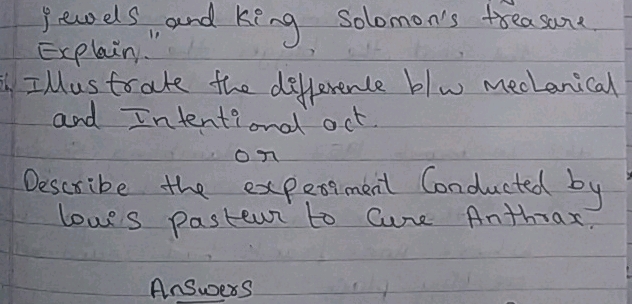 jewels" and King Solomon's treasure.
Explain.
Illustrate the difference b/w Mechanical
and Intentional act.
or
Describe the experiment Conducted by
louis pasteur to Cure Anthrax.
Answers